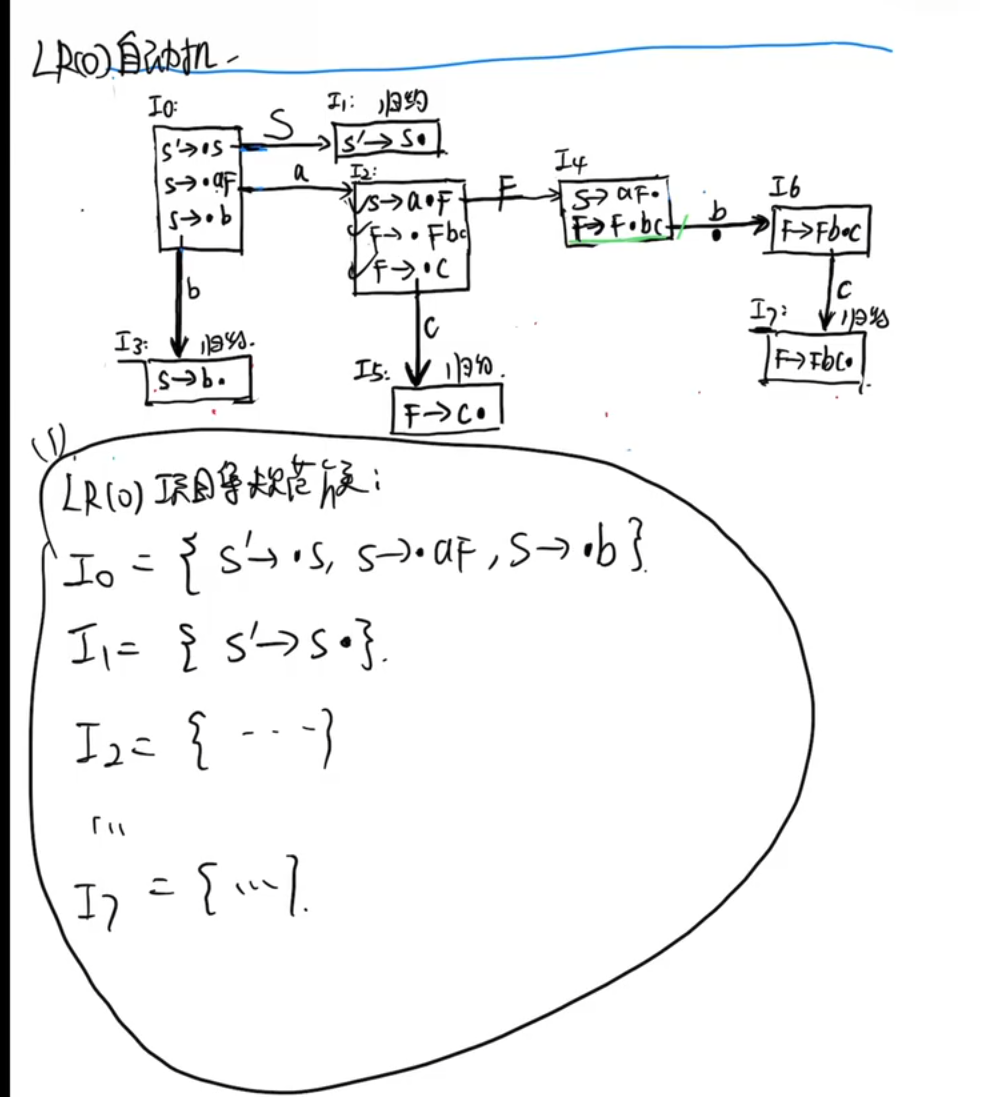 LR(0)自动机
I0:
S'→·S
S→·aF
S→·b
S
I1: 归约
S'→S·
a
I2:
S→a·F
F→·Fbc
F→·C
F
I4
S→aF·
F→F·bc
b
I6
F→Fb·C
b
I3: 归约.
S→b·
C
I5: 归约.
F→C·
C
I7: 归约
F→Fbc·
(1)
LR(0)项目集规范族:
I0 = { S'→·S, S→·aF, S→·b}.
I1 = { S'→S·}.
I2 = { ---}
...
I7 = {...}.